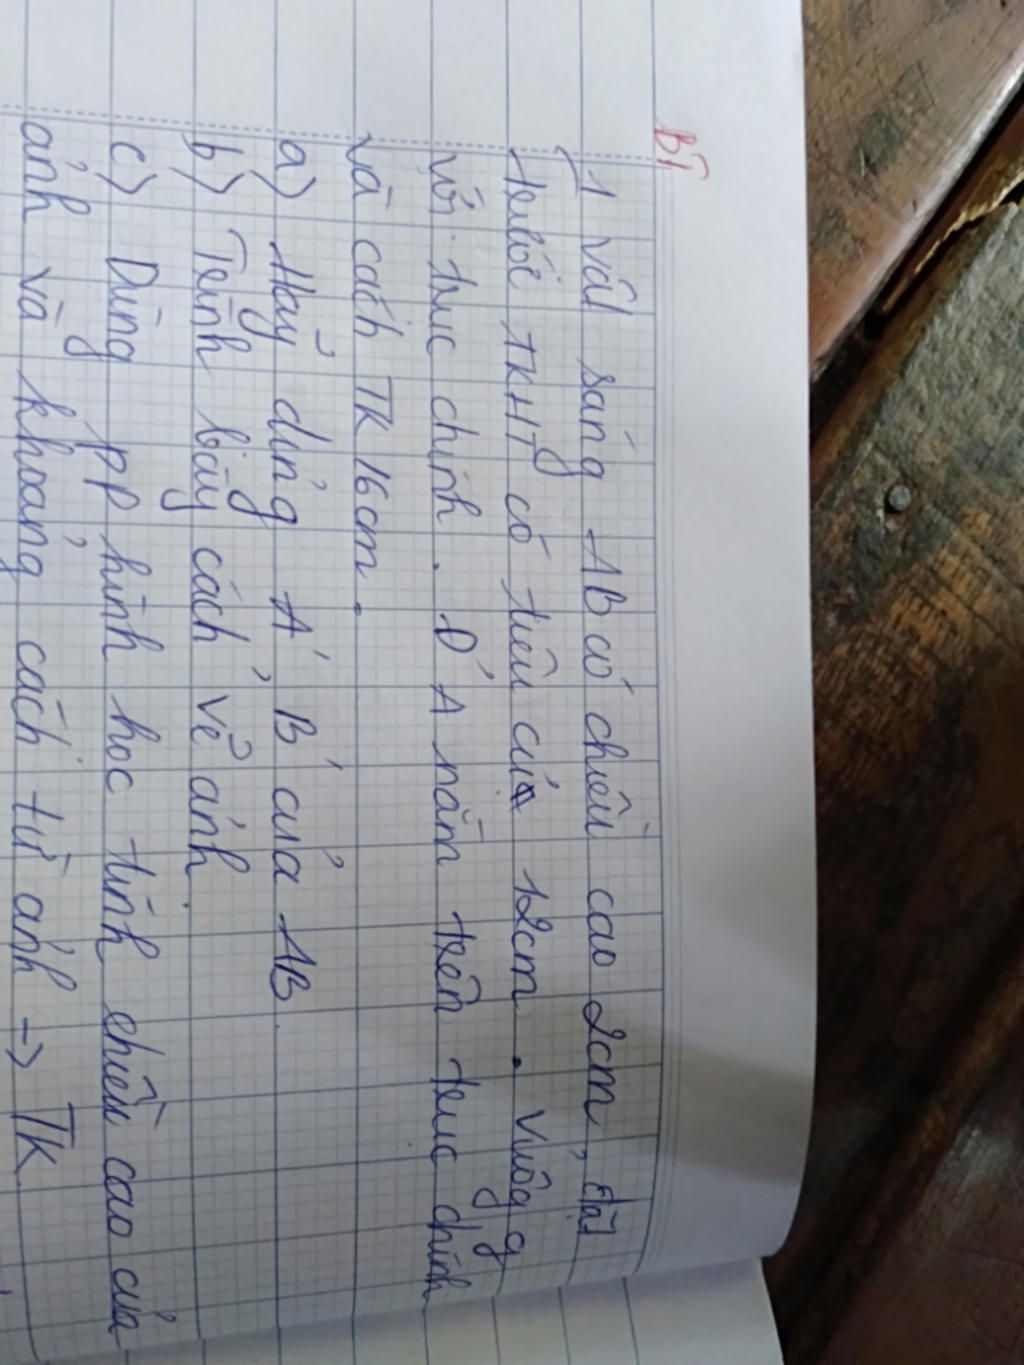 BT
1 vật sáng AB có chiều cao 2cm, đặt
trước TKHT có tiêu cự 12cm. Vuông g
với trục chính. Đ' A nằm trên trục chính
và cách TK 16cm.
a) Hãy dựng A' B' của AB.
b) Trình bày cách vẽ ảnh.
c) Dùng pp hình học tính chiều cao của
ảnh và khoảng cách từ ảnh → TK